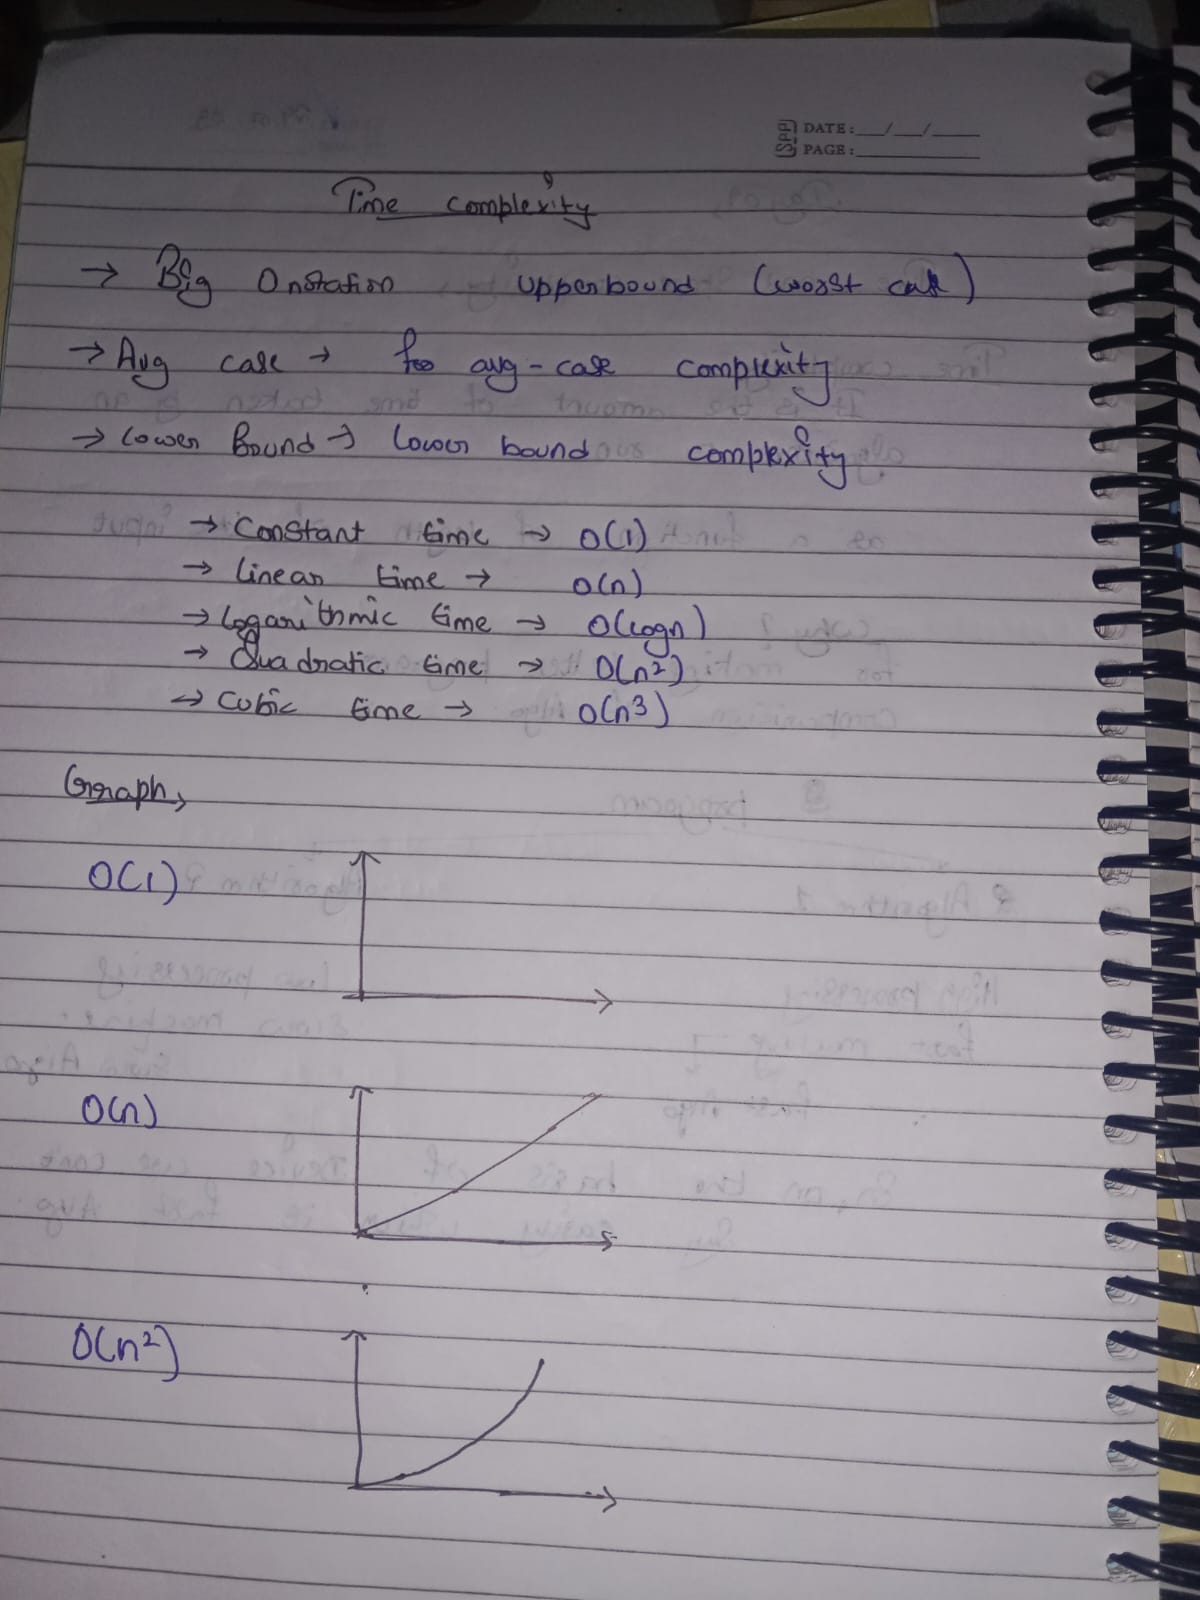 DATE: __/__/____
PAGE: ________
Time complexity
→ Big Onstation Upperbound (worst case)
→ Avg case → for avg-case complexity
→ Lower Bound → Lower bound complexity
→ Constant time → O(1)
→ Linear time → O(n)
→ Logarithmic time → O(logn)
→ Quadratic time → O(n²)
→ Cubic time → O(n³)
Graph,
O(1)
O(n)
O(n²)